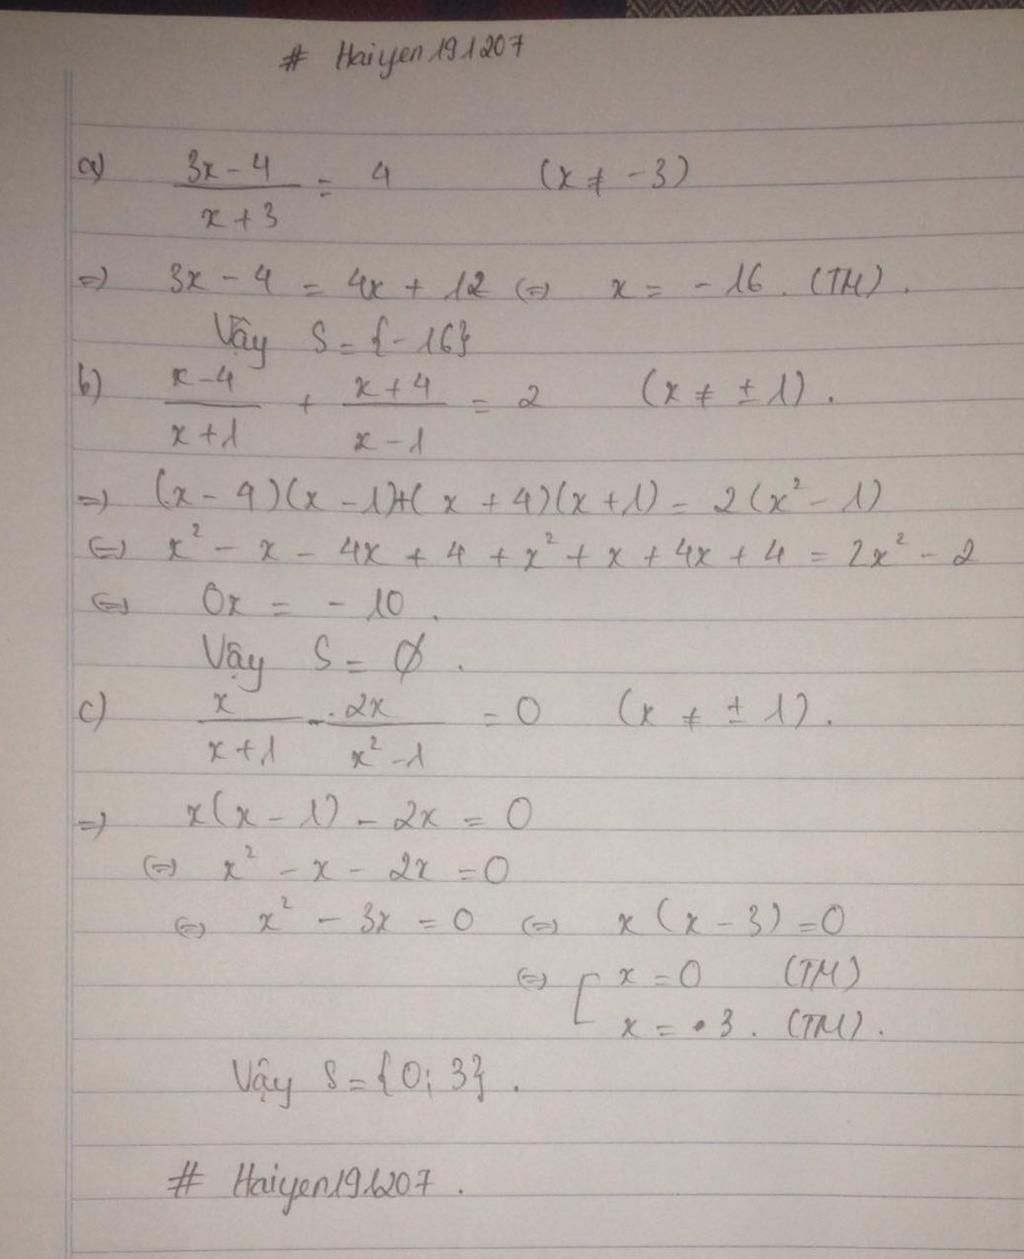 # Haiyen191207
a) (3x - 4)/(x + 3) = 4 (x ≠ -3)
=> 3x - 4 = 4x + 12 <=> x = -16. (TM).
Vậy S = {-16}
b) (x-4)/(x+1) + (x+4)/(x-1) = 2 (x ≠ ± 1).
=> (x - 4)(x - 1)+(x + 4)(x + 1) = 2(x² - 1)
<=> x² - x - 4x + 4 + x² + x + 4x + 4 = 2x² - 2
<=> 0x = -10.
Vậy S = ∅.
c) x/(x+1) - 2x/(x²-1) = 0 (x ≠ ± 1).
=> x(x - 1) - 2x = 0
<=> x² - x - 2x = 0
<=> x² - 3x = 0 <=> x(x - 3) = 0
<=> [ x = 0 (TM)
x = 3. (TM).
Vậy S = {0; 3}.
# Haiyen191207.